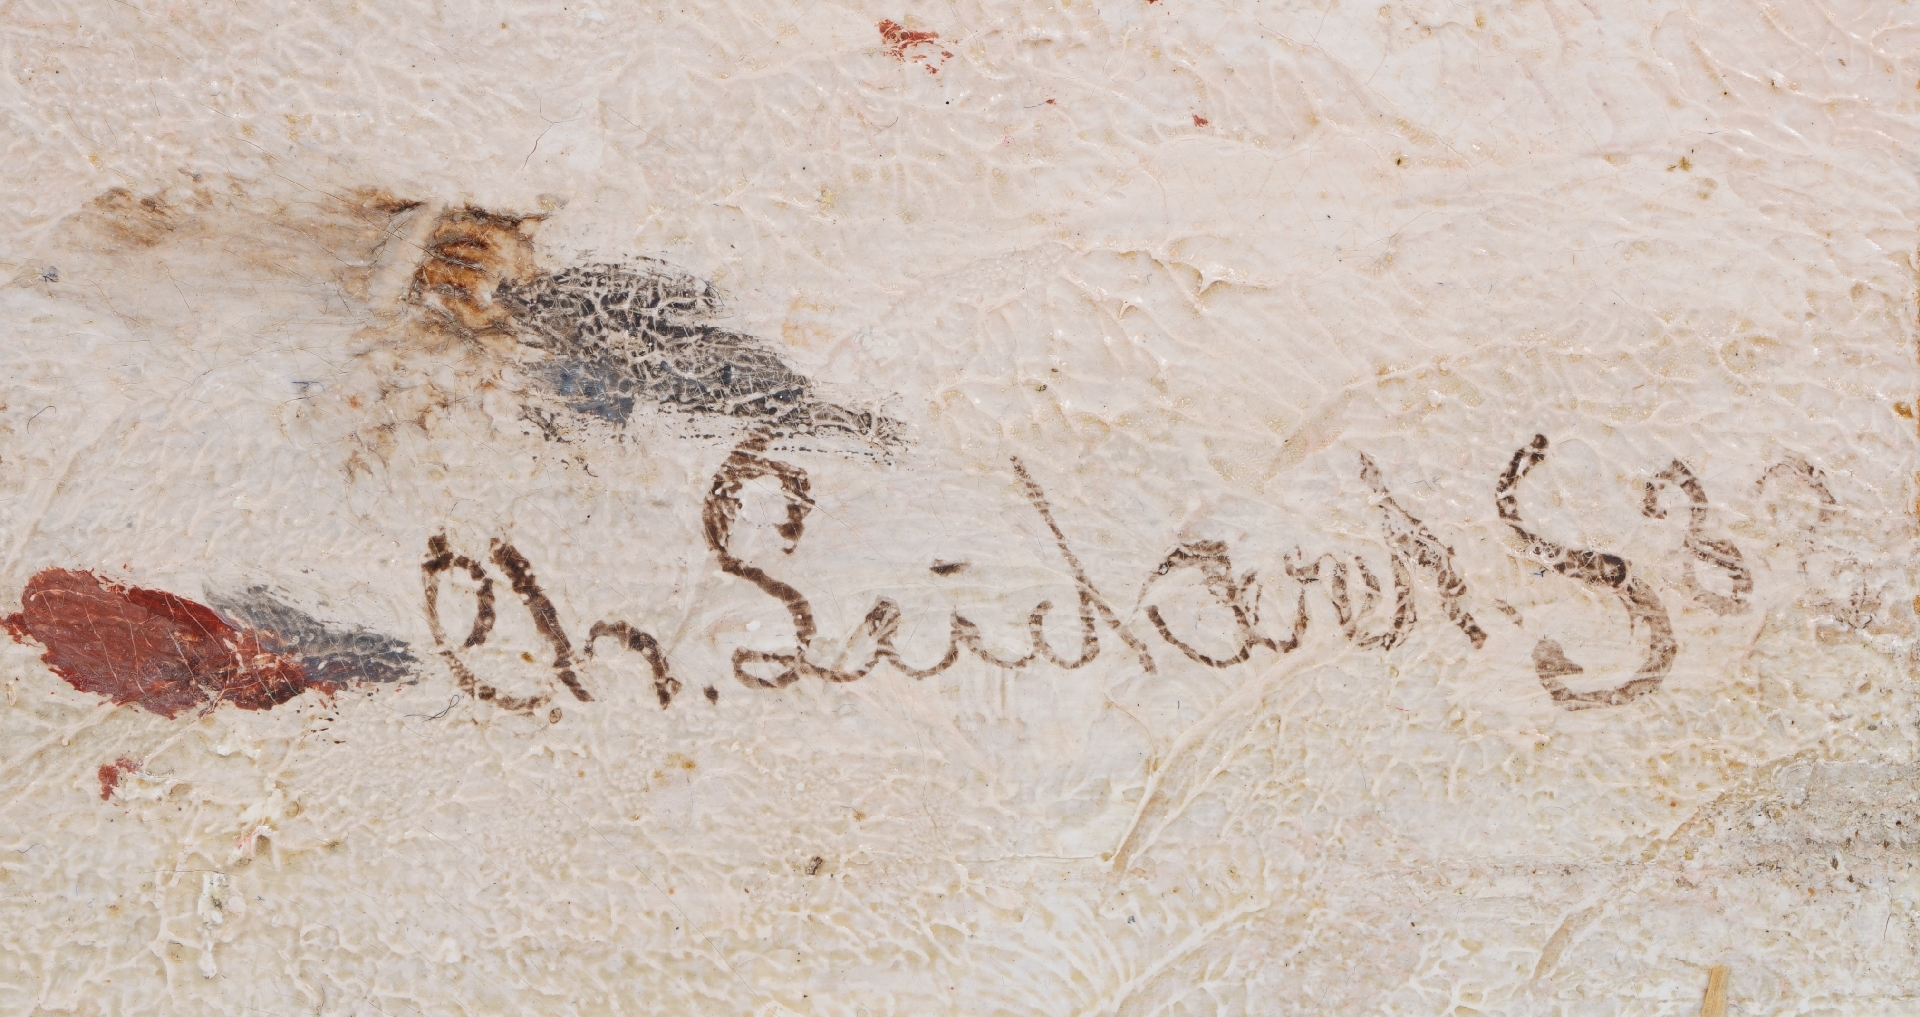 Ch. Leickert